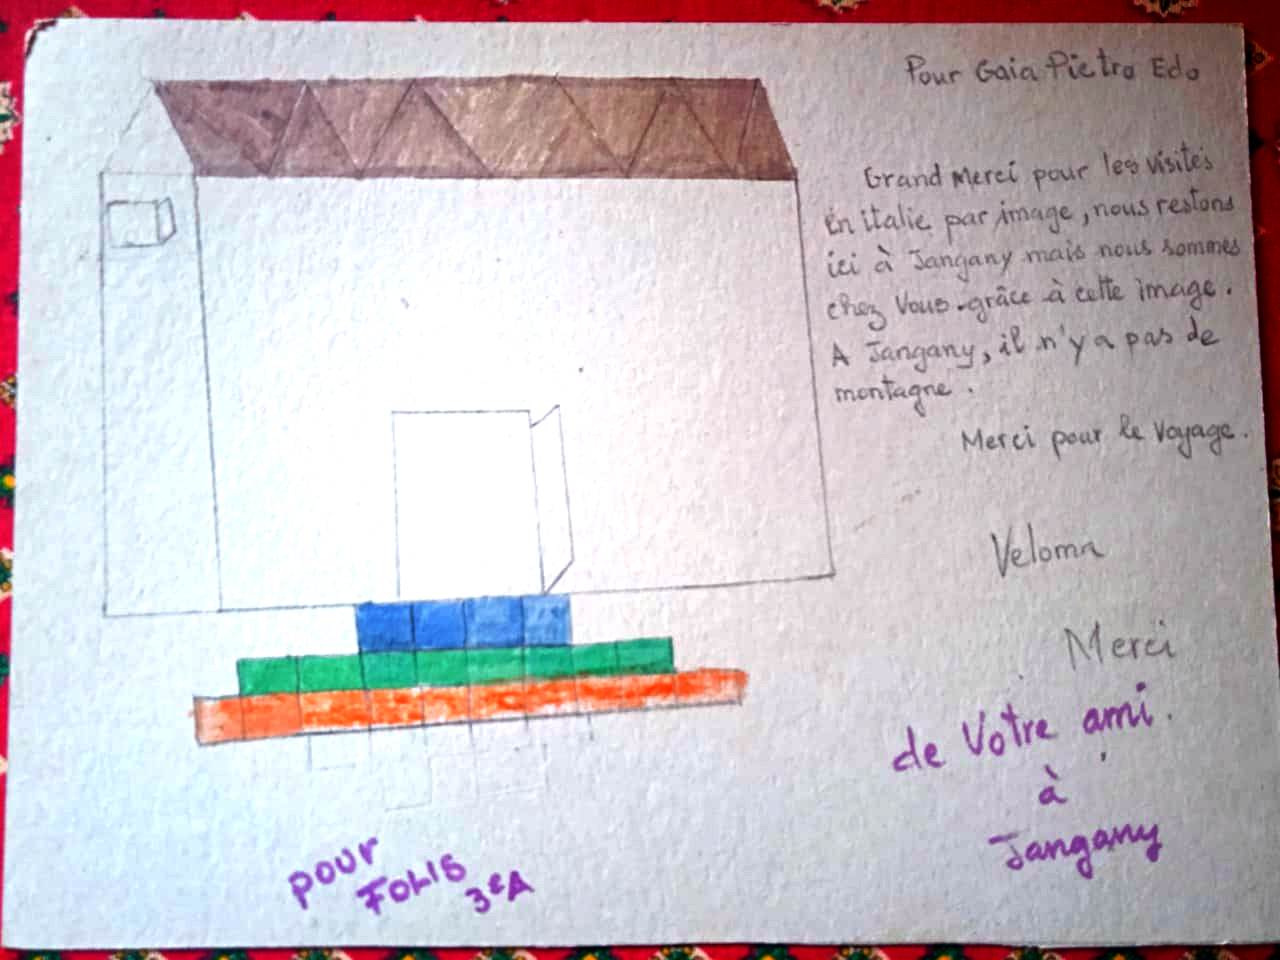 Pour Gaia Pietro Edo
Grand Merci pour les visites
en italie par image, nous restons
ici à Jangany mais nous sommes
chez Vous grâce à cette image.
A Jangany, il n'y a pas de
montagne.
Merci pour le voyage.
Veloma
Merci
de Votre ami
à
Jangany
pour
FOLIS
3èA